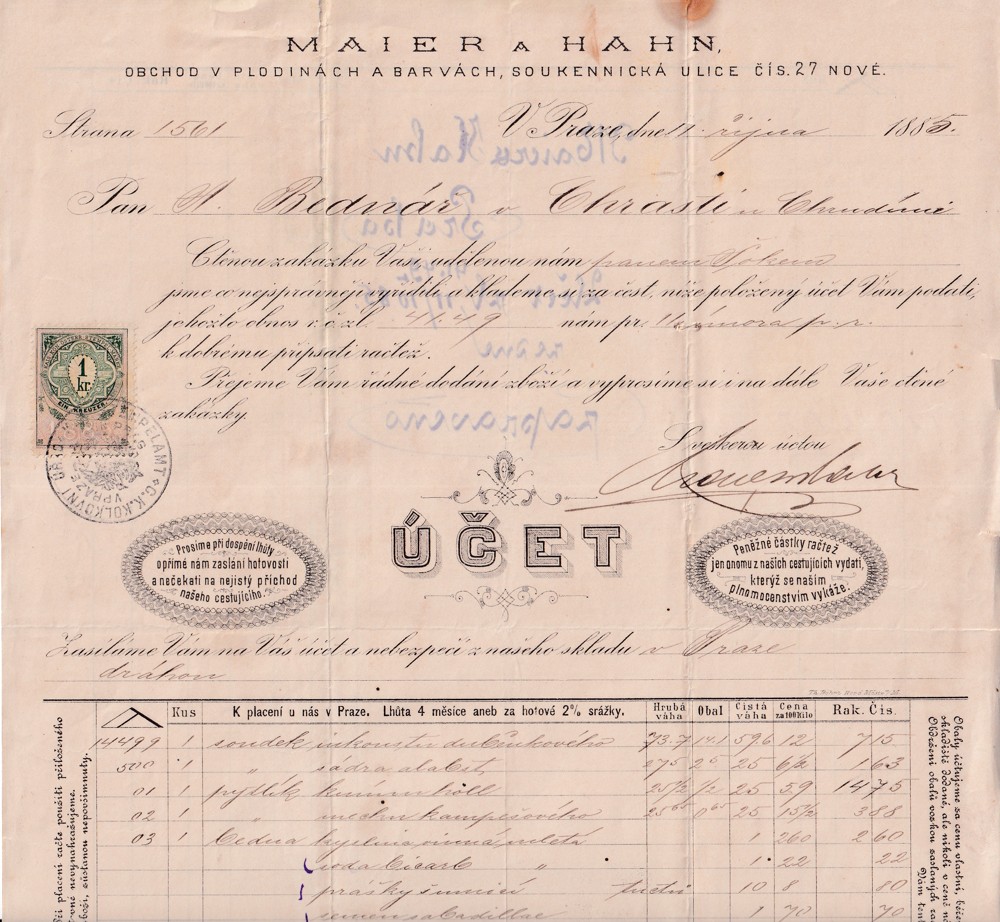 MAIER A HAHN,
OBCHOD V PLODINÁCH A BARVÁCH, SOUKENNICKÁ ULICE ČÍS. 27 NOVÉ.
Strana 1561
V Praze, dne 11. října 1885.
Pan A. Bednář v Chrasti u Chrudimě
Ctěnou zakázku Vaši udělenou nám panem
jsme co nejsprávněji vyřídili a klademe si za čest, níže položený účet Vám podati,
jehožto obnos r. č. zl. 4149 nám pr.
k dobrému připsati račtež.
Přejeme Vám řádné dodání zboží a vyprosíme si i na dále Vaše ctěné
zakázky.
S veškerou úctou
1
kr.
EIN KREUZER.
C.K. KOLKOVNÍ
V PRAZE
ÚČET
Prosíme při dospění lhůty
o přímé nám zaslání hotovosti
a nečekati na nejistý příchod
našeho cestujícího.
Peněžné částky račtež
jen onomu z našich cestujících vydati,
kterýž se naším
plnomocenstvím vykáže.
Zasíláme Vám na Váš účet a nebezpečí z našeho skladu v Praze
dráhou
Kus K placení u nás v Praze. Lhůta 4 měsíce aneb za hotové 2% srážky. Hrubá váha Obal Čistá váha Cena za 100 Kilo Rak. Čís.
14499 1 soudek inkoustu duběnkového 73.7 14.1 59.6 12 715
500 1 " sádra alabst. 27 5 25 6 1/2 163
01 1 pytlík 25 1/2 1/2 25 59 1475
02 1 " kampešového 25 25 15 1/2 388
03 1 bedna kyselina vinná 1 260 2 60
soda " 1 22 22
prášky 10 8 80
semen sabadillae 1 70 70
Při placení račte použíti přiloženého
Obaly účtujeme za cenu vlastní,
skladiště dodané, ale nikoli v ceně
Obdržení obalů voskou zaslaných
Vám